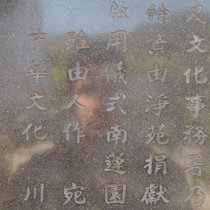 及文化事務署乃
餘資由淨苑捐獻
啟用儀式南蓮園
雖由人作宛
中華文化
川